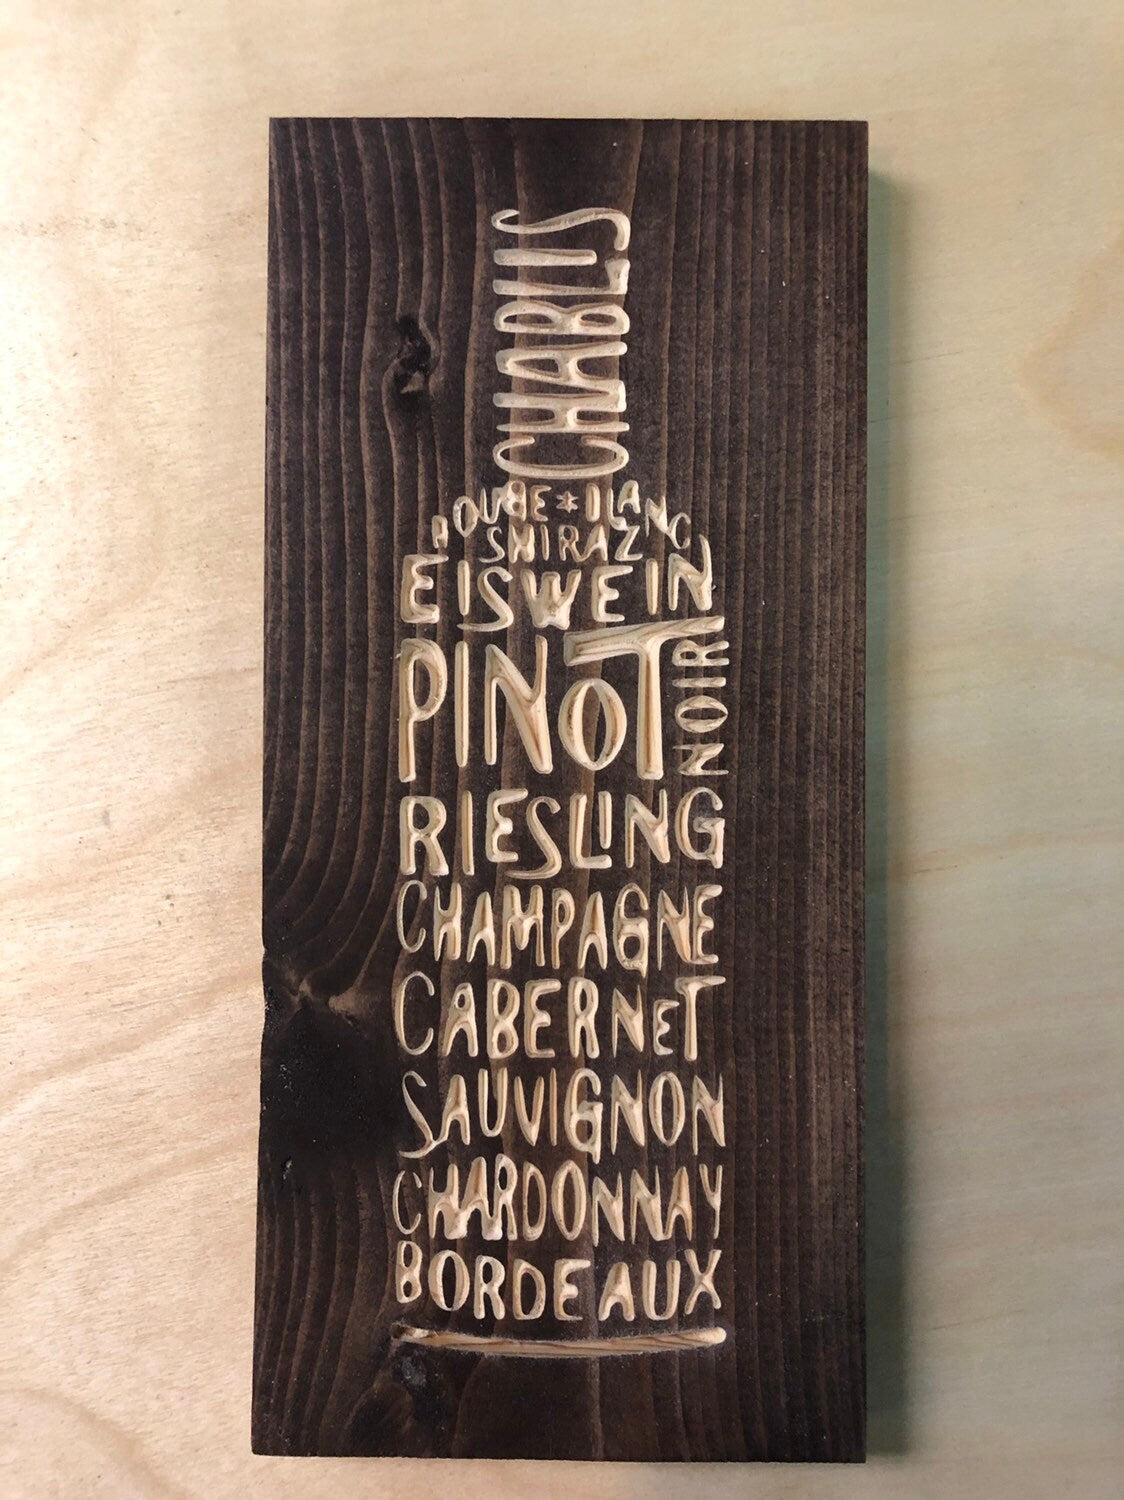 CHABLIS
BLANC
SHIRAZ
EISWEIN
PINOT
NOIR
RIESLING
CHAMPAGNE
CABERNET
SAUVIGNON
CHARDONNAY
BORDEAUX